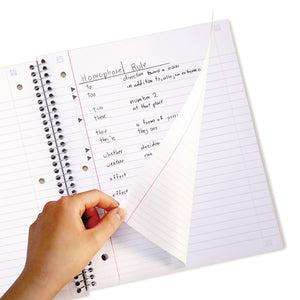 Homophone Rule
to direction toward a
too in addition to, also, an
two number 2
there at that place
their a form of
they're they are
whether decision
weather rain
affect
effect